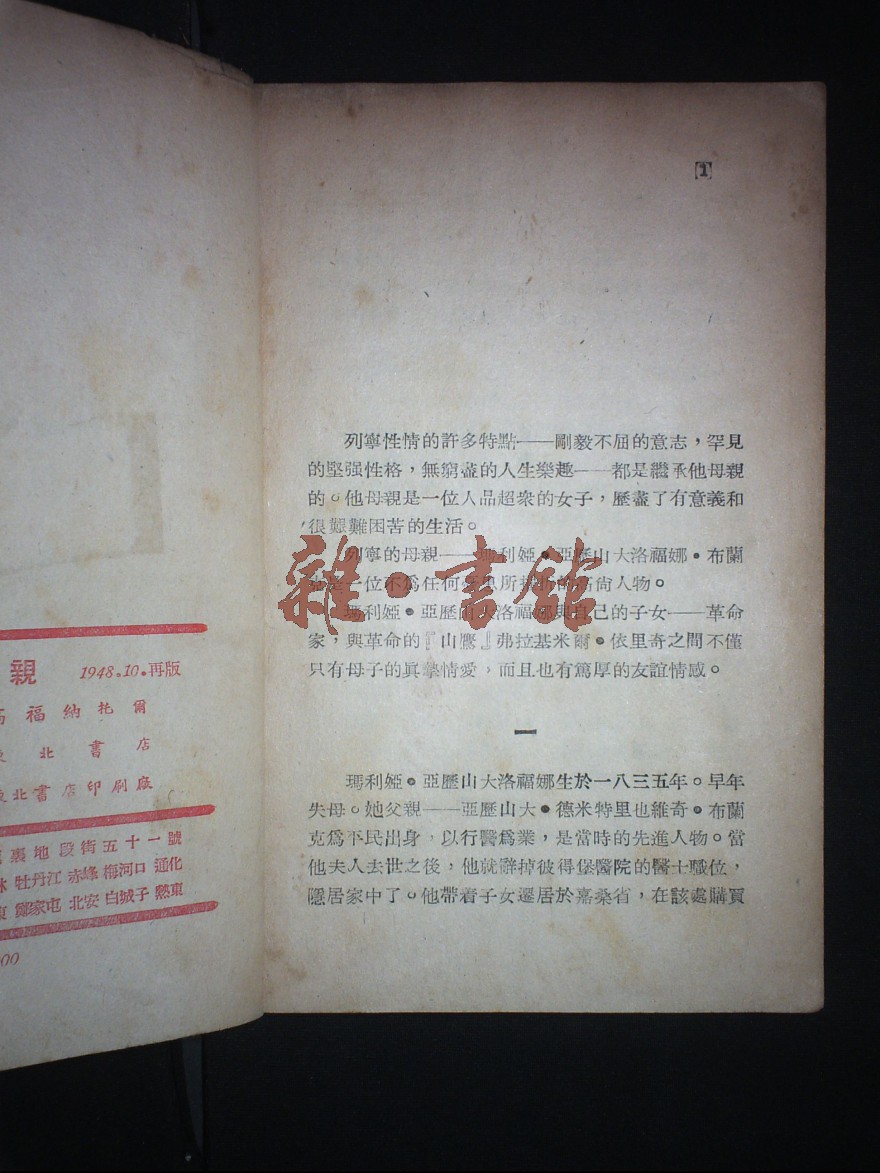 親 1948.10.再版
福納托爾
北書店
北書店印刷廠
裏地段街五十一號
牡丹江 赤峰 梅河口 通化
鄭家屯 北安 白城子 熱東
00
[1]
列寧性情的許多特點——剛毅不屈的意志，罕見
的堅强性格，無窮盡的人生樂趣——都是繼承他母親
的。他母親是一位人品超衆的女子，歷盡了有意義和
很艱難困苦的生活。
列寧的母親——瑪利婭·亞歷山大洛福娜·布蘭
是一位不爲任何 所 的高尙人物。
瑪利婭·亞歷山大洛福娜與自己的子女——革命
家，與革命的『山鷹』弗拉基米爾·依里奇之間不僅
只有母子的眞摯情愛，而且也有篤厚的友誼情感。
雜·書館
一
瑪利婭·亞歷山大洛福娜生於一八三五年。早年
失母。她父親——亞歷山大·德米特里也維奇·布蘭
克爲平民出身，以行醫爲業，是當時的先進人物。當
他夫人去世之後，他就辭掉彼得堡醫院的醫士職位，
隱居家中了。他带着子女遷居於嘉桑省，在該處購買